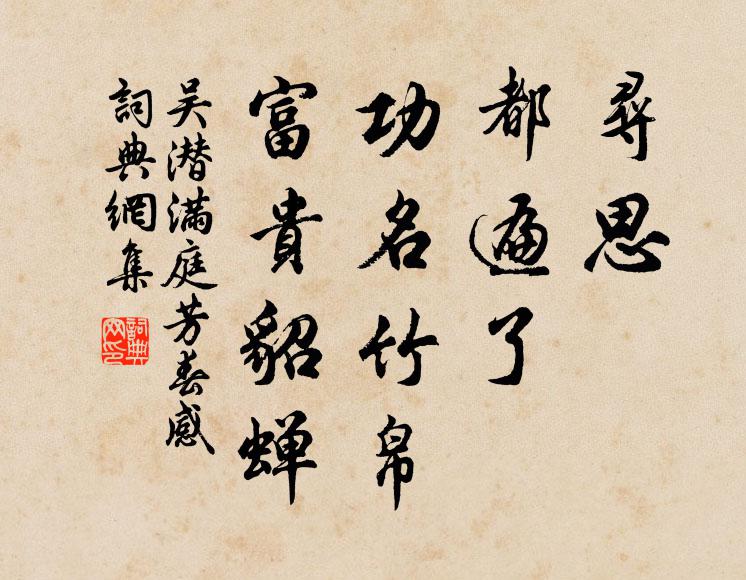 尋思
都遍了
功名竹帛
富貴貂蟬
吴潜滿庭芳春感
詞典網集
詞典網印